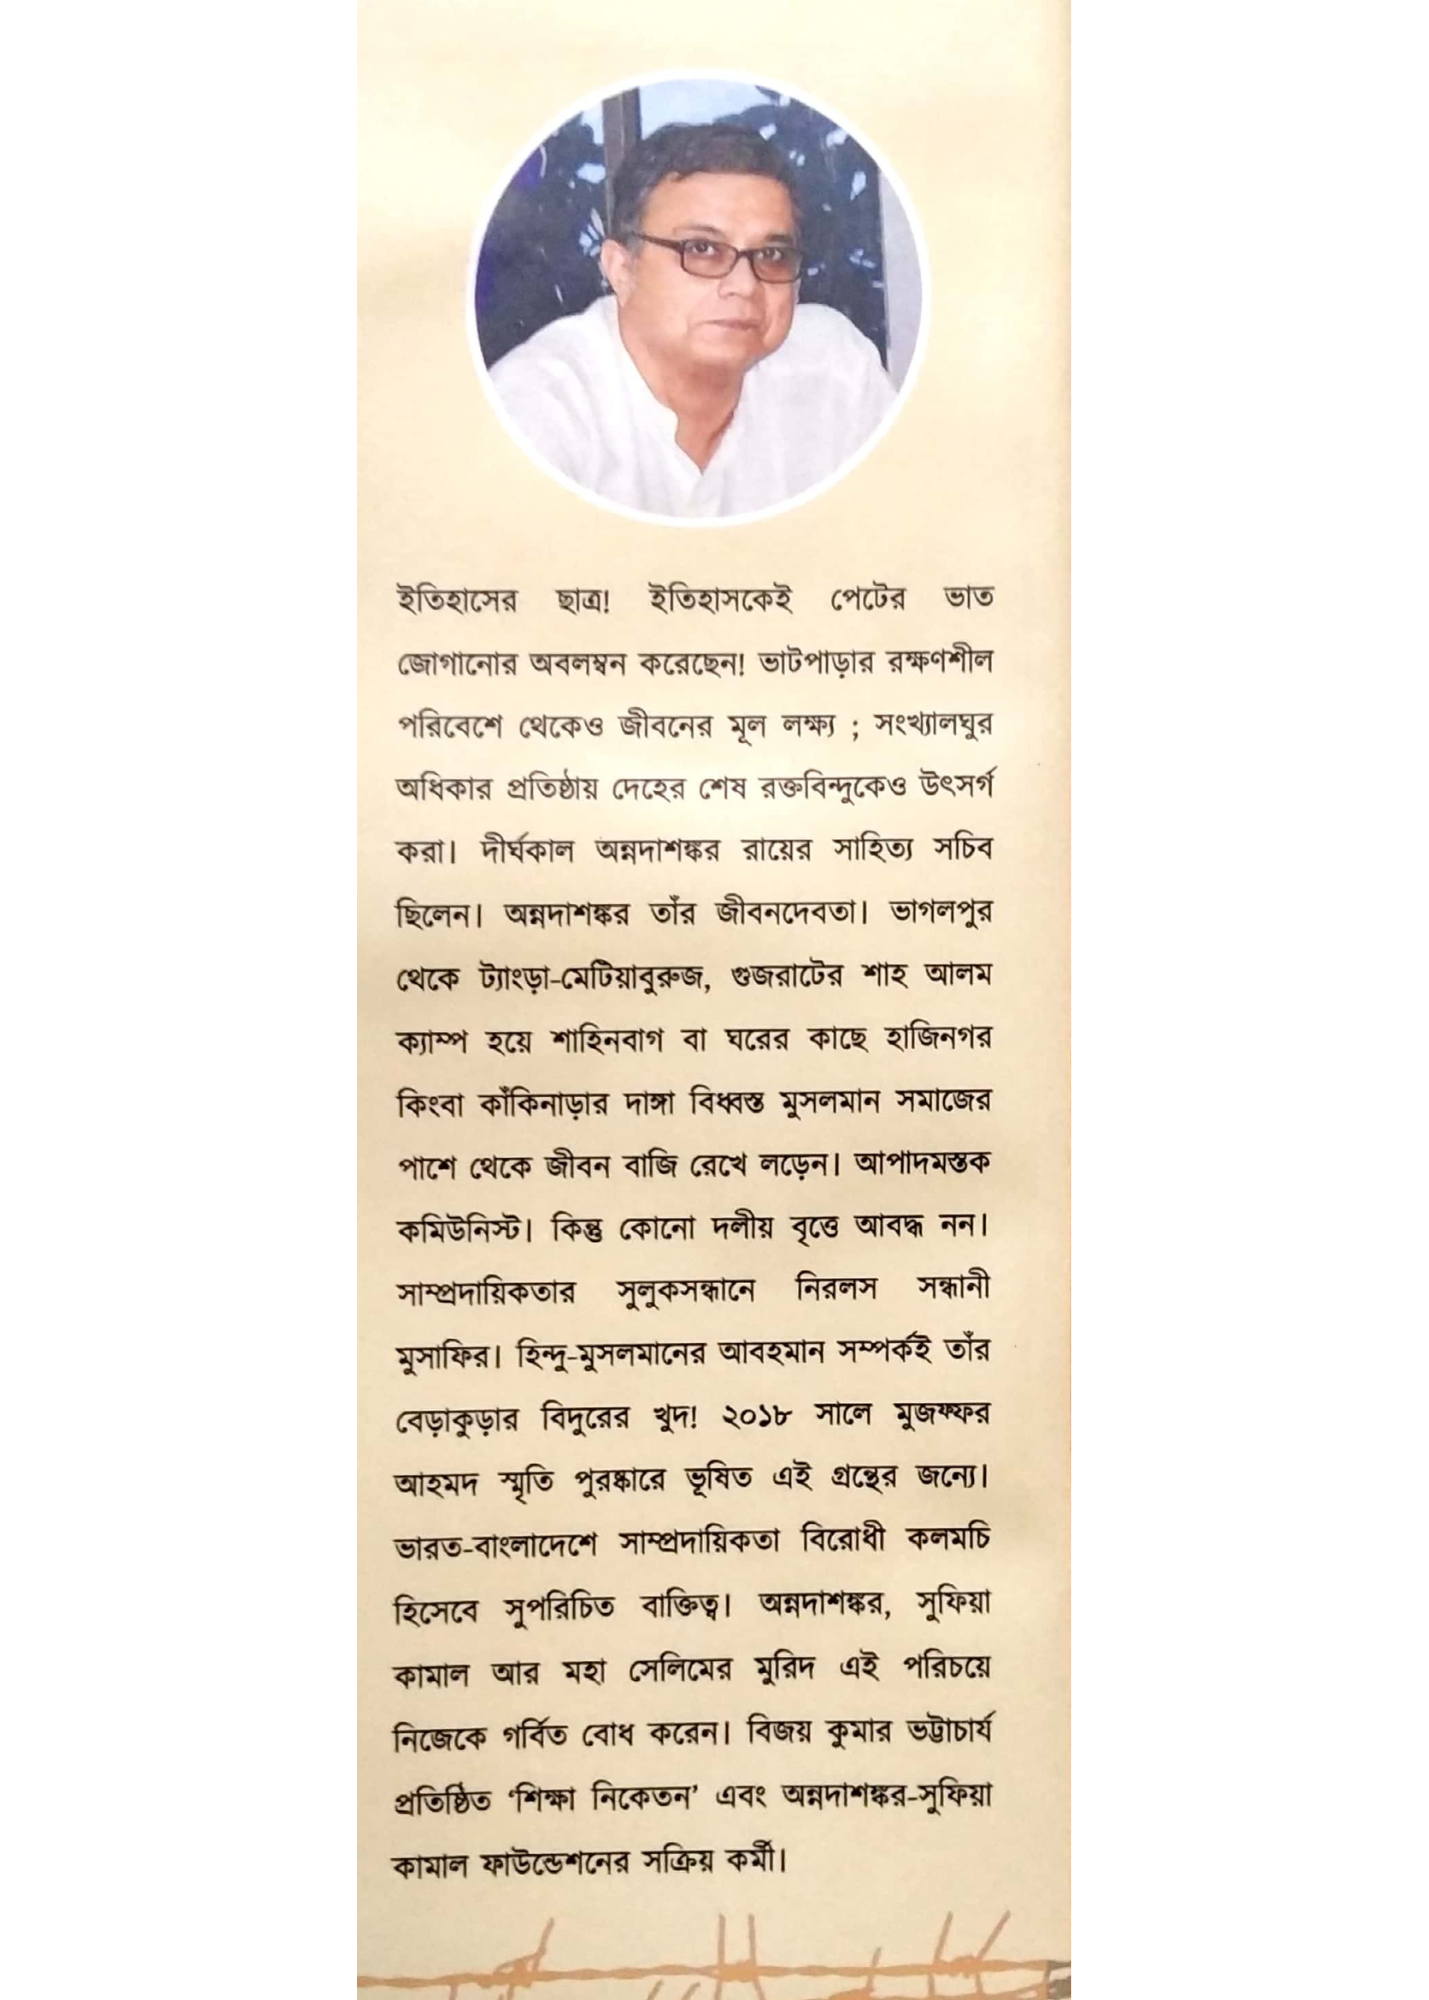 ইতিহাসের ছাত্র! ইতিহাসকেই পেটের ভাত
জোগানোর অবলম্বন করেছেন! ভাটপাড়ার রক্ষণশীল
পরিবেশে থেকেও জীবনের মূল লক্ষ্য ; সংখ্যালঘুর
অধিকার প্রতিষ্ঠায় দেহের শেষ রক্তবিন্দুকেও উৎসর্গ
করা। দীর্ঘকাল অন্নদাশঙ্কর রায়ের সাহিত্য সচিব
ছিলেন। অন্নদাশঙ্কর তাঁর জীবনদেবতা। ভাগলপুর
থেকে ট্যাংড়া-মেটিয়াবুরুজ, গুজরাটের শাহ আলম
ক্যাম্প হয়ে শাহিনবাগ বা ঘরের কাছে হাজিনগর
কিংবা কাঁকিনাড়ার দাঙ্গা বিধ্বস্ত মুসলমান সমাজের
পাশে থেকে জীবন বাজি রেখে লড়েন। আপাদমস্তক
কমিউনিস্ট। কিন্তু কোনো দলীয় বৃত্তে আবদ্ধ নন।
সাম্প্রদায়িকতার সুলুকসন্ধানে নিরলস সন্ধানী
মুসাফির। হিন্দু-মুসলমানের আবহমান সম্পর্কই তাঁর
বেড়াকুড়ার বিদুরের খুদ! ২০১৮ সালে মুজফ্ফর
আহমদ স্মৃতি পুরষ্কারে ভূষিত এই গ্রন্থের জন্যে।
ভারত-বাংলাদেশে সাম্প্রদায়িকতা বিরোধী কলমচি
হিসেবে সুপরিচিত বাক্তিত্ব। অন্নদাশঙ্কর, সুফিয়া
কামাল আর মহা সেলিমের মুরিদ এই পরিচয়ে
নিজেকে গর্বিত বোধ করেন। বিজয় কুমার ভট্টাচার্য
প্রতিষ্ঠিত ‘শিক্ষা নিকেতন’ এবং অন্নদাশঙ্কর-সুফিয়া
কামাল ফাউন্ডেশনের সক্রিয় কর্মী।